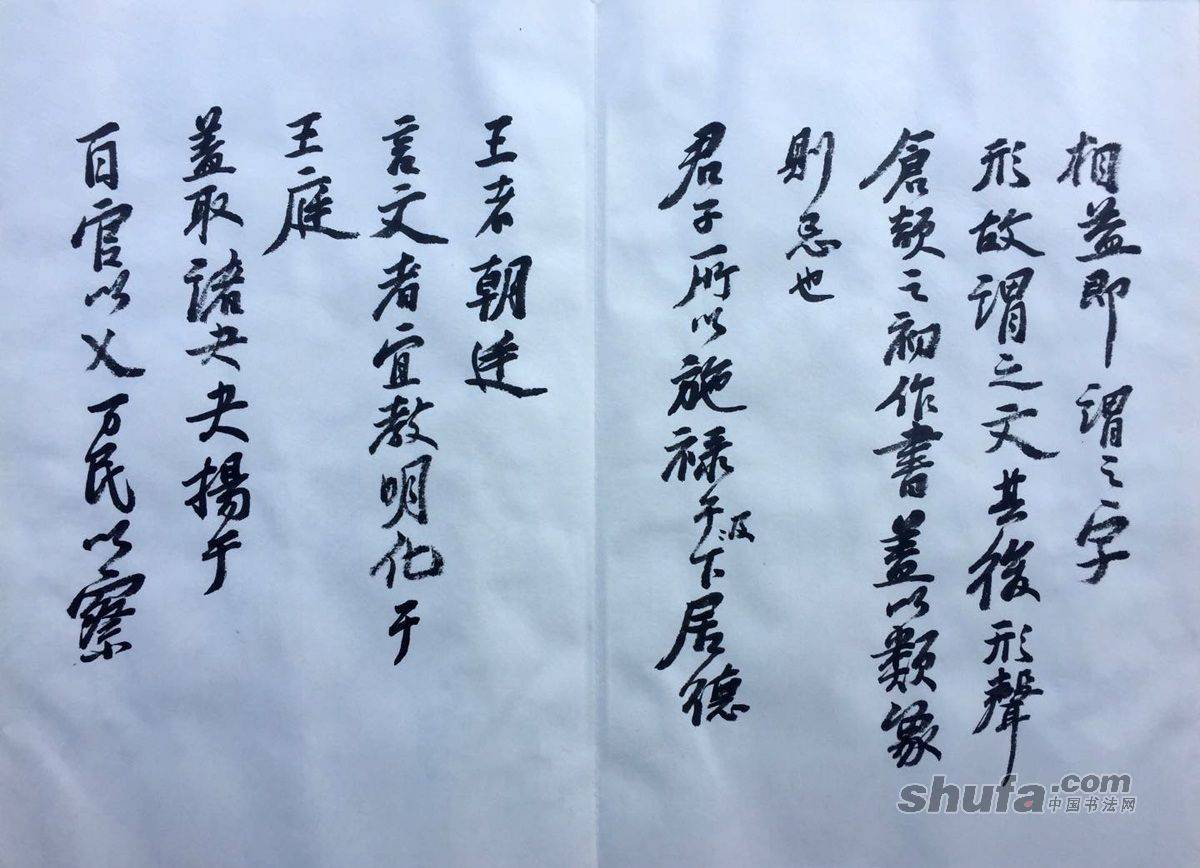 百官以乂万民以察
蓋取諸夬夬揚于
王庭
言文者宜教明化于
王者朝廷
君子所以施禄于及下居德
則忌也
倉頡之初作書蓋以類象
形故謂之文其後形聲
相益即謂之字
shufa.com
中国书法网